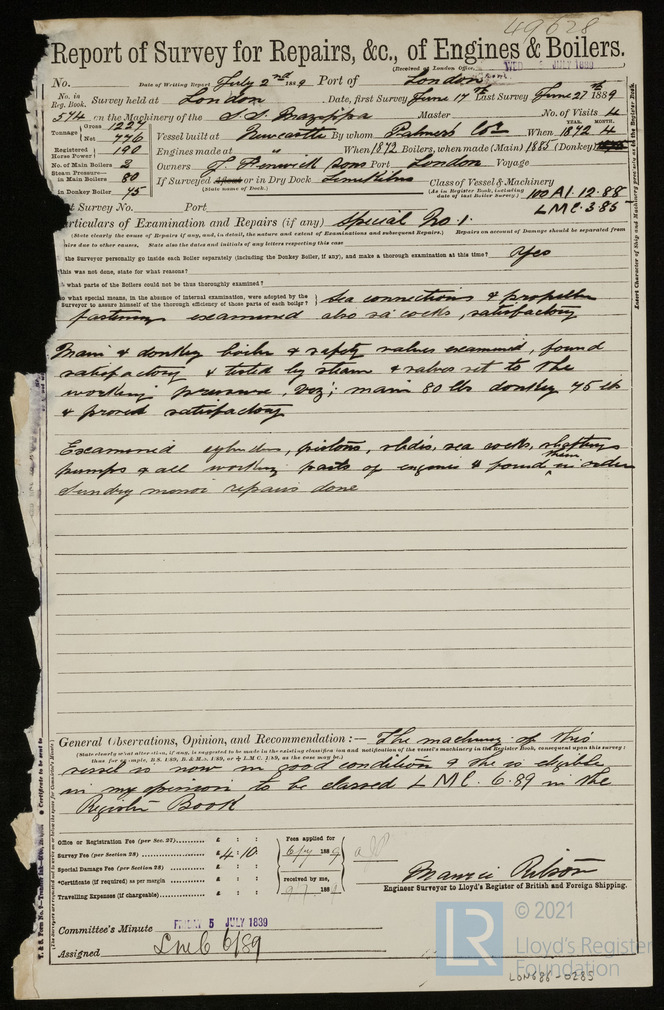 49628
Report of Survey for Repairs, &c., of Engines & Boilers.
(Received at London Office, WED 3 JULY 1889
No. Date of Writing Report July 2nd 1889 Port of London
No. in Reg. Book. Survey held at London Date, first Survey June 17th Last Survey June 27th 1889
574 on the Machinery of the S.S. Mazeppa Master No. of Visits 4
Tonnage Gross 1227 Net 776 Vessel built at Newcastle By whom Palmers Co. YEAR. MONTH. When 1872 4
Registered Horse Power 190 Engines made at " When 1872 Boilers, when made (Main) 1885 (Donkey)
No. of Main Boilers 2 Owners J. Fenwick & Sons Port London Voyage
Steam Pressure— in Main Boilers 80 If Surveyed Afloat or in Dry Dock Limekilns
(State name of Dock.)
Class of Vessel & Machinery
(As in Register Book, including date of last Boiler Survey.) 100 A1. 12.88
in Donkey Boiler 75
LMC. 3.85
Survey No. Port
Particulars of Examination and Repairs (if any) Special No. 1.
(State clearly the cause of Repairs if any, and, in detail, the nature and extent of Examinations and subsequent Repairs.) Repairs on account of Damage should be separated from
repairs due to other causes. State also the dates and initials of any letters respecting this case
the Surveyor personally go inside each Boiler separately (including the Donkey Boiler, if any), and make a thorough examination at this time? Yes
this was not done, state for what reasons?
what parts of the Boilers could not be thus thoroughly examined?
what special means, in the absence of internal examination, were adopted by the Surveyor to assure himself of the thorough efficiency of those parts of each boiler? Sea connections & propeller
fastening examined also sea cocks, satisfactory
Main & donkey boiler & safety valves examined, found
satisfactory & tested by steam & valves set to the
working pressure, viz; main 80 lbs donkey 75 lb
& proved satisfactory
Examined cylinders, pistons, slides, sea cocks, shafting
pumps & all working parts of engines & found them in order
Sundry minor repairs done
General Observations, Opinion, and Recommendation:— The machinery of this
(State clearly what alteration, if any, is suggested to be made in the existing classification and notification of the vessel's machinery in the Register Book, consequent upon this survey;
thus for example, B.S. 1/89, B. & M.S. 1/89, or L.M.C. 1/89, as the case may be.)
vessel is now in good condition & she is eligible
in my opinion to be classed LMC. 6.89 in the
Register Book
Office or Registration Fee (per Sec. 27) £ : :
Survey Fee (per Section 28) £ 4.10
Special Damage Fee (per Section 28) £ : :
*Certificate (if required) as per margin £ : :
Travelling Expenses (if chargeable) £ : :
Fees applied for
6/7 1889
received by me,
9/7 188
Engineer Surveyor to Lloyd's Register of British and Foreign Shipping.
Committee's Minute FRIDAY 5 JULY 1889
Assigned LMC 6/89
© 2021
LR
Lloyd's Register
Foundation
LON686-0285